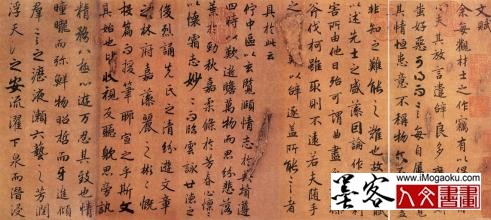 文賦
余每觀材士之作竊有以得
心夫其放言遣辭良多
妍蚩好惡可得而言每自
其情恒患意不稱物文
非知之難能之難也故
以述先士之盛藻因論作
害所由他日殆可謂曲盡
斧伐柯雖取則不遠若夫隨手
良難以辭逮蓋所能言者
具於此云
佇中區以玄覽頤情志於典墳遵
四時以歎逝瞻萬物而思紛悲落
葉於勁秋喜柔條於芳春心懍懍
以懷霜志眇眇而臨雲詠世德之
俊烈誦先民之清芬遊文章
之林府嘉藻麗之彬彬慨
投篇而援筆聊宣之乎斯文
其始也皆收視反聽耽思傍訊
精騖八極心遊萬仞其致也情
曈曨而彌鮮物昭晢而互進傾
群言之瀝液漱六藝之芳潤
浮天淵之安流濯下泉而潛浸
http://www.iMogaoku.com
墨客
人文書畫